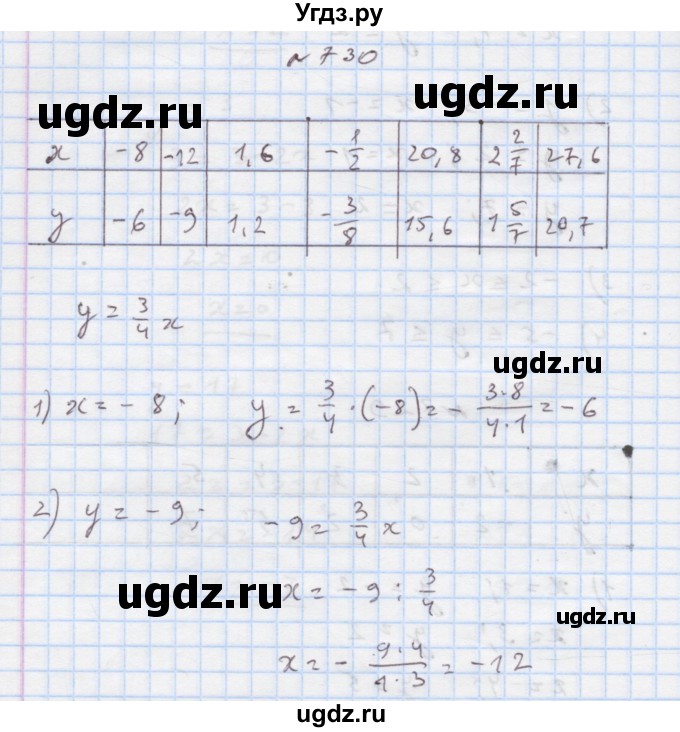 Угдз.ру
№ 730
ugdz.ru ugdz.ru
x -8 -12 1,6 -1/2 20,8 2 2/7 27,6
y -6 -9 1,2 -3/8 15,6 1 5/7 20,7
y = 3/4 x
ugdz.ru
1) x = - 8; y = 3/4 · (-8) = - 3·8/4·1 = - 6
2) y = - 9; - 9 = 3/4 x
ugdz.ru x = - 9 : 3/4
ugdz.ru
x = - 9·4/1·3 = - 12
ugdz.ru